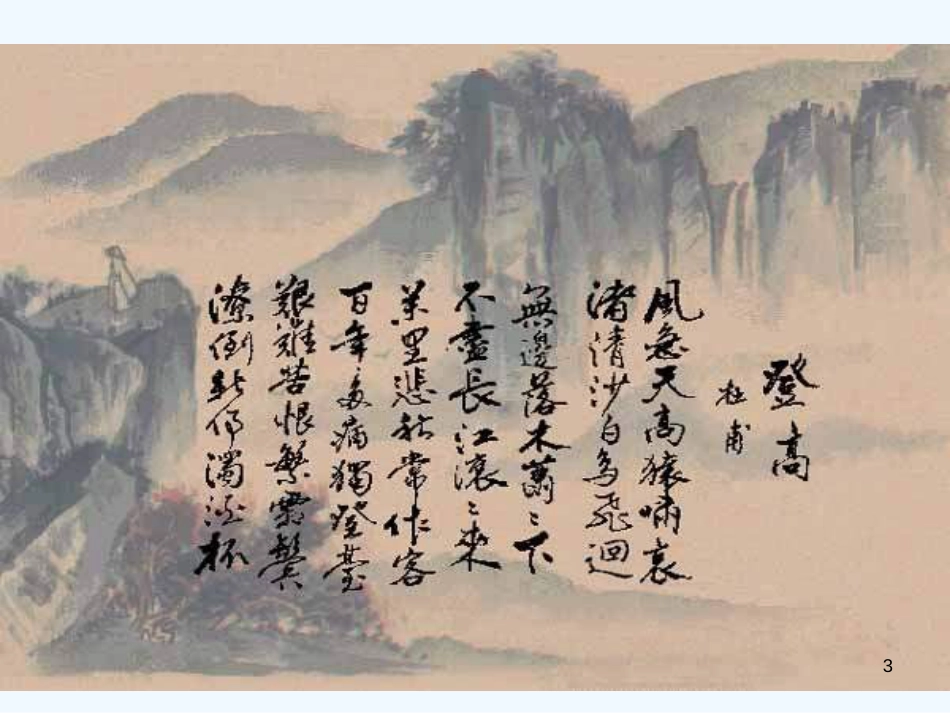 登高
杜甫
風急天高猿嘯哀
渚清沙白鳥飛迴
無邊落木蕭〻下
不盡長江滾〻來
萬里悲秋常作客
百年多病獨登臺
艱難苦恨繁霜鬢
潦倒新停濁酒杯
3